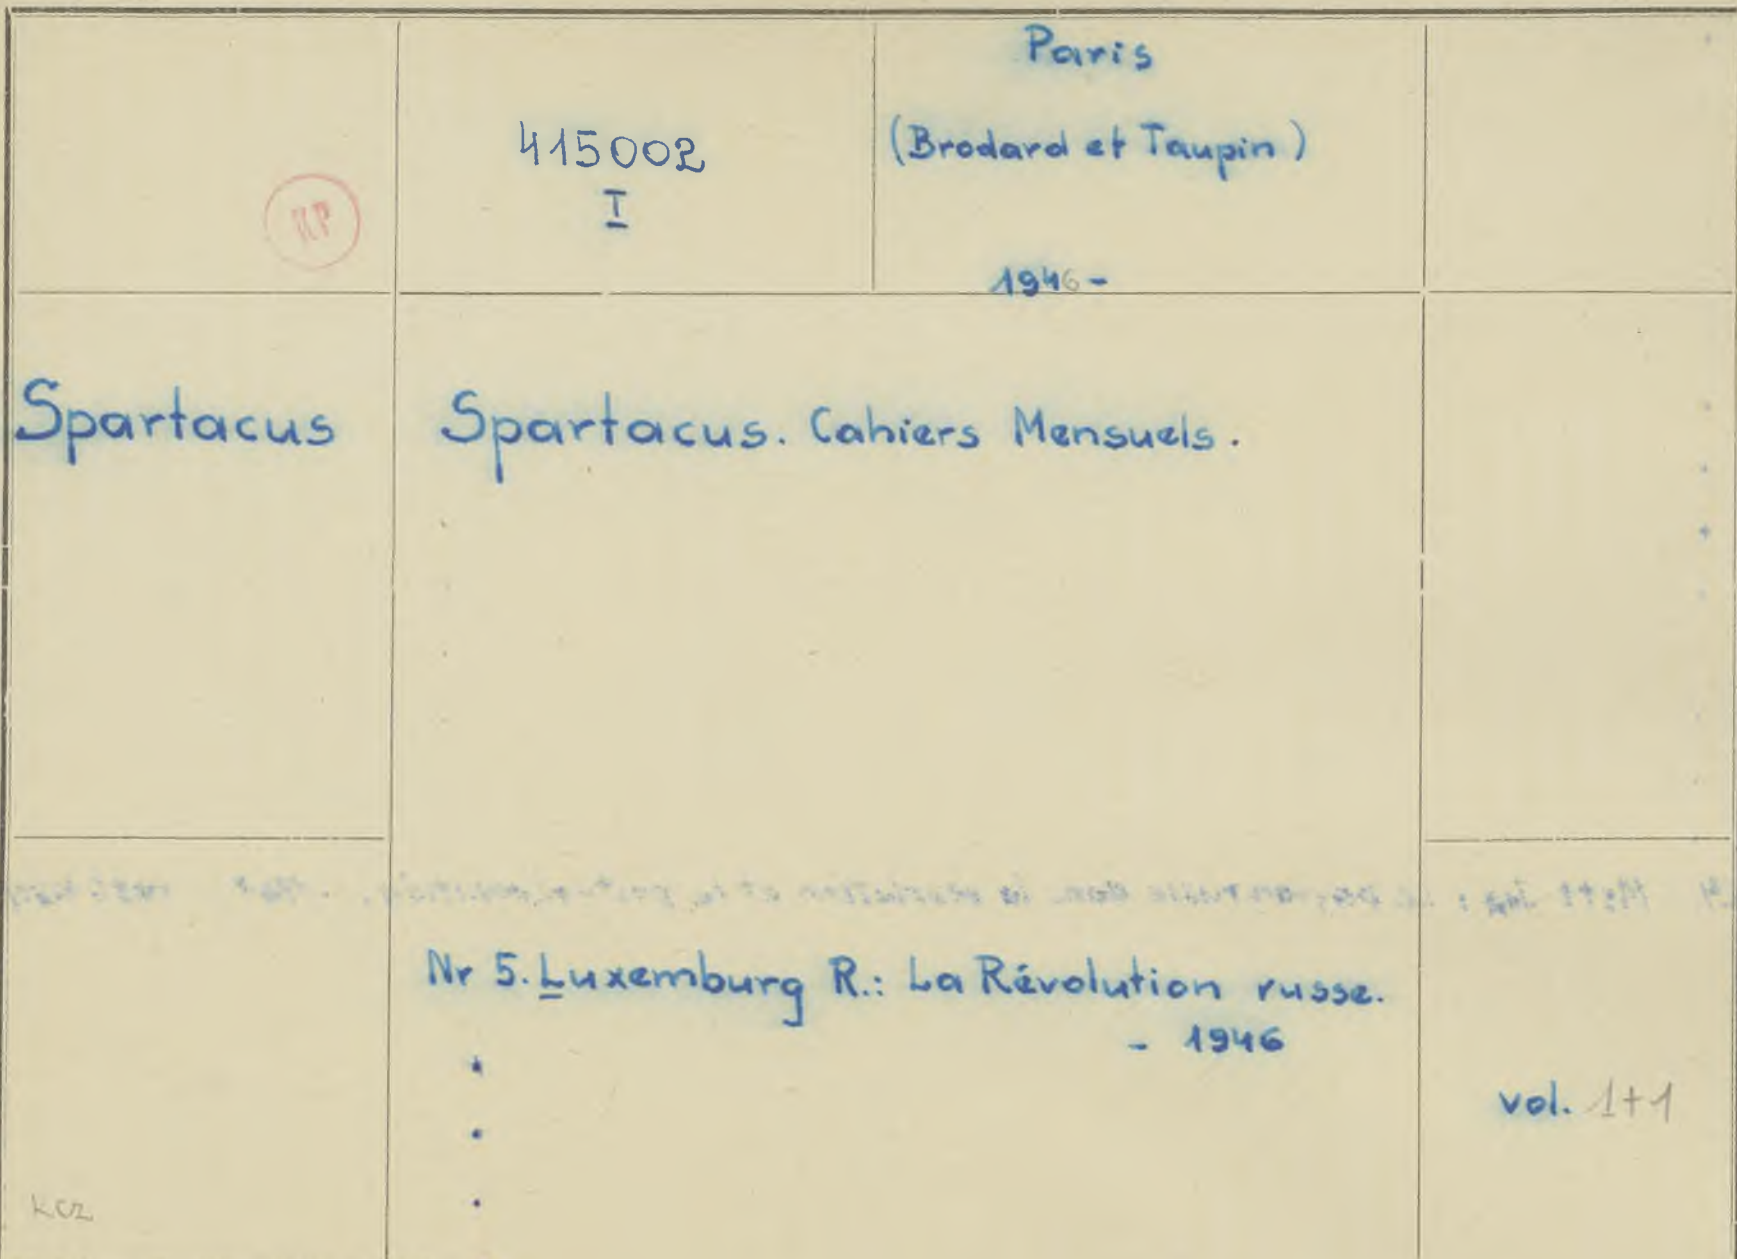 Paris
415002
(Brodard et Taupin)
I
RP
1946-
Spartacus
Spartacus. Cahiers Mensuels.
Nr 5. Luxemburg R.: La Révolution russe.
- 1946
vol. 1+1
KCZ